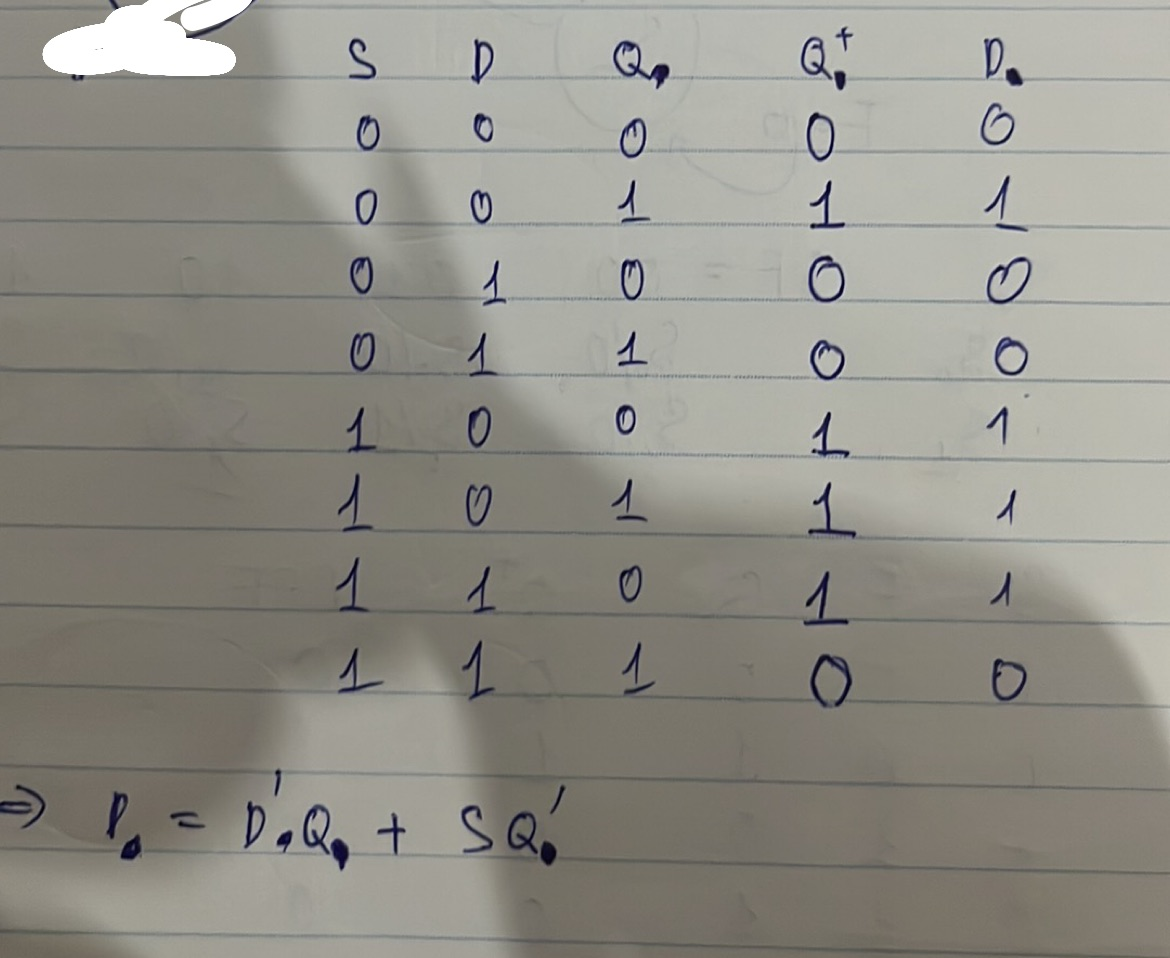 S D Q Q⁺ D
0 0 0 0 0
0 0 1 1 1
0 1 0 0 0
0 1 1 0 0
1 0 0 1 1
1 0 1 1 1
1 1 0 1 1
1 1 1 0 0
⇒ D = D'Q + SQ'